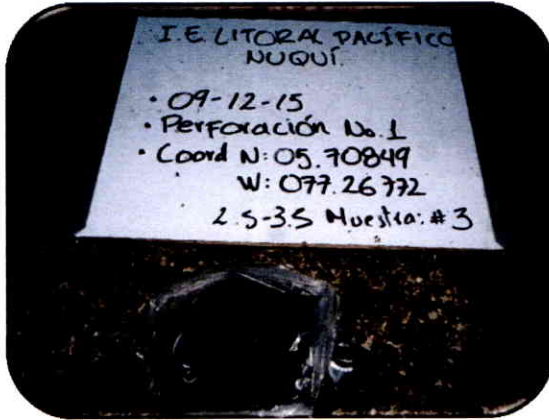 I.E. LITORAL PACÍFICO
NUQUÍ.
• 09-12-15
• Perforación No. 1
• Coord N: 05.70849
W: 077.26772
2.5-3.5 Muestra: #3